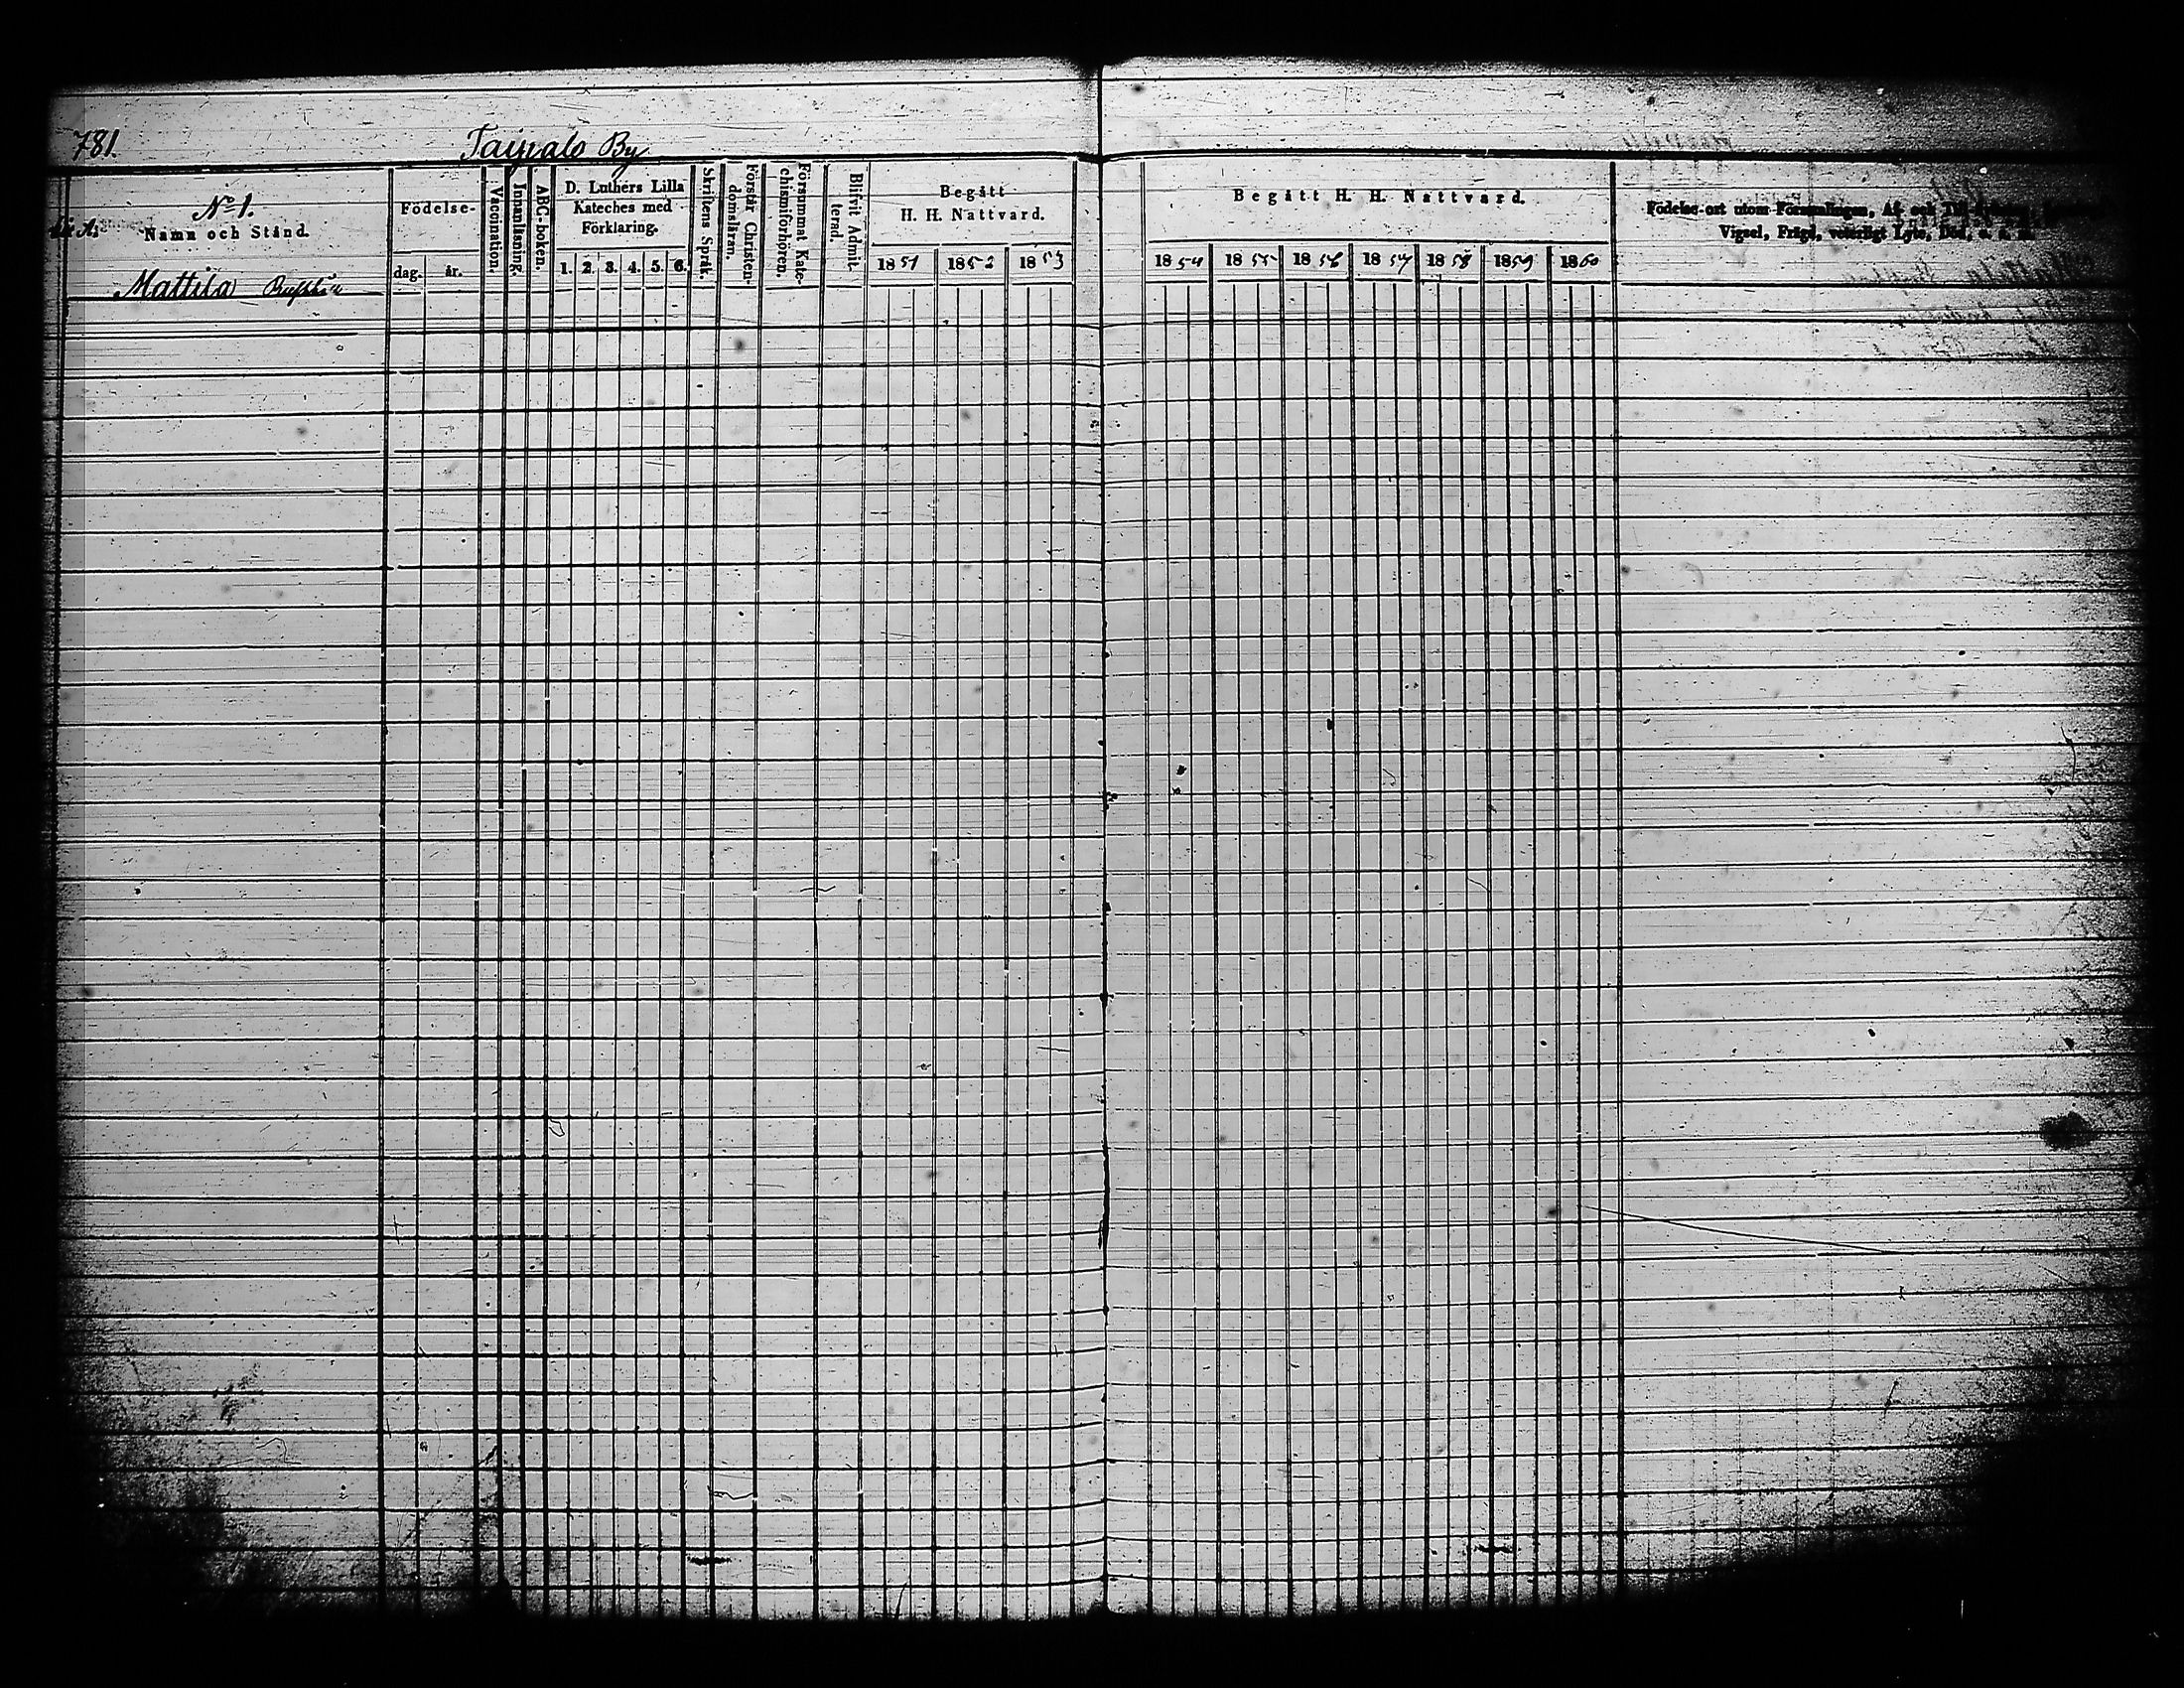 781.
Taipale By
No 1.
Namn och Stånd.
Mattila
Födelse-
dag. år.
Vaccination.
Innanläsning.
ABC-boken.
D. Luthers Lilla
Kateches med
Förklaring.
1. 2. 3. 4. 5. 6.
Skriftens Språk.
Förstår Christen-
domsläran.
Försummat Kate-
chismiförhören.
Blifvit Admit-
terad.
Begått
H. H. Nattvard.
1851 1852 1853
Begått H. H. Nattvard.
1854 1855 1856 1857 1858 1859 1860
Födelse-ort utom Församlingen, Af- och Till-
Vigsel, Frägd, veterligt Lyte, Död, e. s. m.